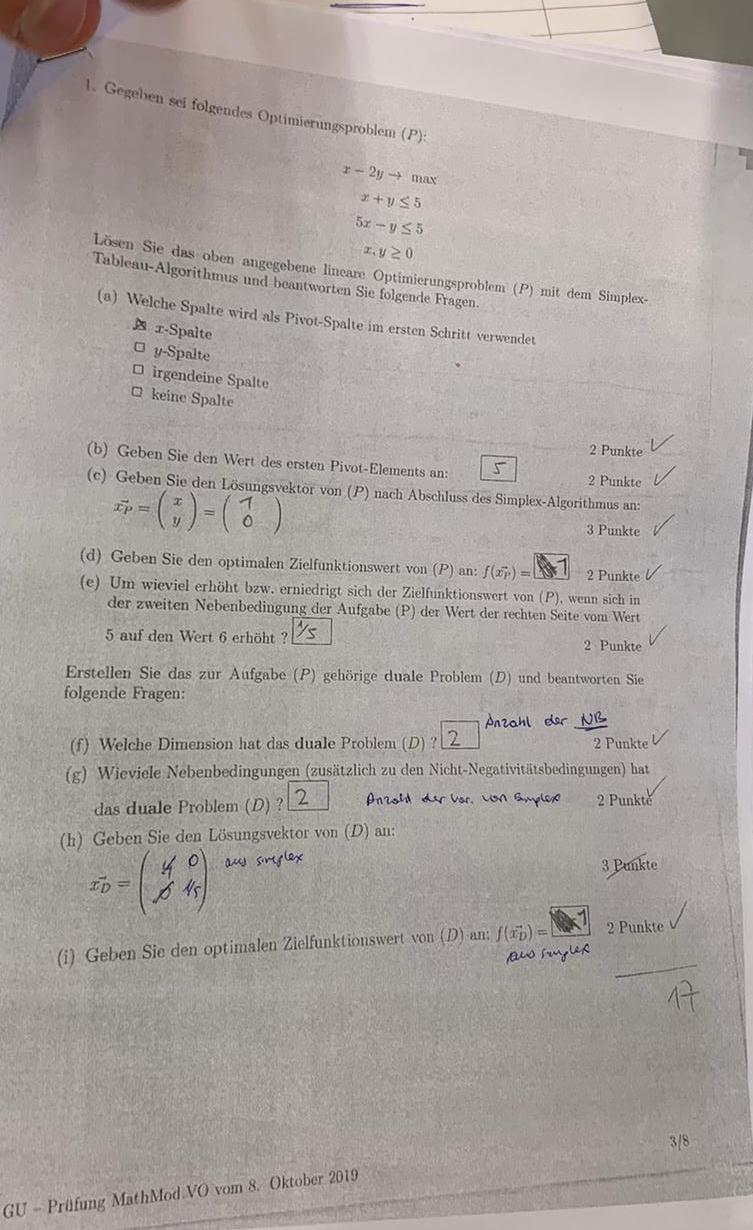 1. Gegeben sei folgendes Optimierungsproblem (P):
x − 2y → max
x + y ≤ 5
5x − y ≤ 5
x, y ≥ 0
Lösen Sie das oben angegebene lineare Optimierungsproblem (P) mit dem Simplex-
Tableau-Algorithmus und beantworten Sie folgende Fragen.
(a) Welche Spalte wird als Pivot-Spalte im ersten Schritt verwendet
☒ x-Spalte
☐ y-Spalte
☐ irgendeine Spalte
☐ keine Spalte
2 Punkte ✓
(b) Geben Sie den Wert des ersten Pivot-Elements an: 5 2 Punkte ✓
(c) Geben Sie den Lösungsvektor von (P) nach Abschluss des Simplex-Algorithmus an:
x⃗P = (x y) = (1 0)
3 Punkte ✓
(d) Geben Sie den optimalen Zielfunktionswert von (P) an: f(x⃗P) = 1 2 Punkte ✓
(e) Um wieviel erhöht bzw. erniedrigt sich der Zielfunktionswert von (P), wenn sich in
der zweiten Nebenbedingung der Aufgabe (P) der Wert der rechten Seite vom Wert
5 auf den Wert 6 erhöht ? 1/5 2 Punkte ✓
Erstellen Sie das zur Aufgabe (P) gehörige duale Problem (D) und beantworten Sie
folgende Fragen:
Anzahl der NB
(f) Welche Dimension hat das duale Problem (D) ? 2 2 Punkte ✓
(g) Wieviele Nebenbedingungen (zusätzlich zu den Nicht-Negativitätsbedingungen) hat
das duale Problem (D) ? 2 Anzahl der Var. von Simplex 2 Punkte ✓
(h) Geben Sie den Lösungsvektor von (D) an:
x⃗D = (0 1/5) aus simplex
3 Punkte
(i) Geben Sie den optimalen Zielfunktionswert von (D) an: f(x⃗D) = 1 2 Punkte ✓
aus simplex
17
3/8
GU – Prüfung MathMod.VO vom 8. Oktober 2019